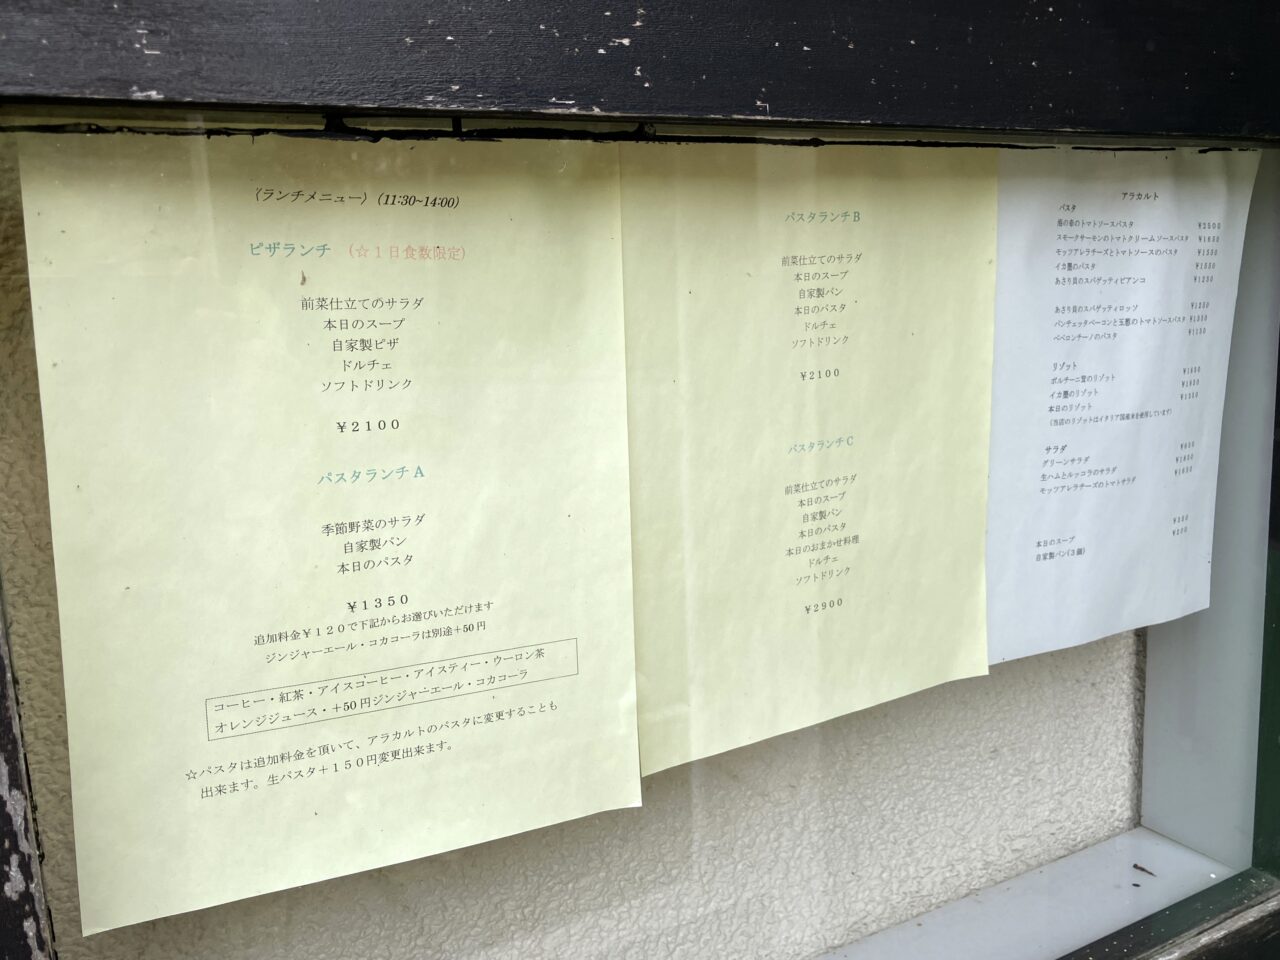 〈ランチメニュー〉(11:30~14:00)
ピザランチ (☆1日食数限定)
前菜仕立てのサラダ
本日のスープ
自家製ピザ
ドルチェ
ソフトドリンク
￥2100
パスタランチA
季節野菜のサラダ
自家製パン
本日のパスタ
￥1350
追加料金￥120で下記からお選びいただけます
ジンジャーエール・コカコーラは別途+50円
コーヒー・紅茶・アイスコーヒー・アイスティー・ウーロン茶
オレンジジュース・+50円ジンジャーエール・コカコーラ
☆パスタは追加料金を頂いて、アラカルトのパスタに変更することも
出来ます。生パスタ+150円変更出来ます。
パスタランチB
前菜仕立てのサラダ
本日のスープ
自家製パン
本日のパスタ
ドルチェ
ソフトドリンク
￥2100
パスタランチC
前菜仕立てのサラダ
本日のスープ
自家製パン
本日のパスタ
本日のおまかせ料理
ドルチェ
ソフトドリンク
￥2900
アラカルト
パスタ
海の幸のトマトソースパスタ
スモークサーモンのトマトクリームソースパスタ
モッツアレラチーズとトマトソースのパスタ
イカ墨のパスタ
あさり貝のスパゲッティビアンコ
あさり貝のスパゲッティロッソ
パンチェッタベーコンと玉葱のトマトソースパスタ
ペペロンチーノのパスタ
リゾット
ポルチーニ茸のリゾット
イカ墨のリゾット
本日のリゾット
(当店のリゾットはイタリア国産米を使用しています)
サラダ
グリーンサラダ
生ハムとルッコラのサラダ
モッツアレラチーズのトマトサラダ
本日のスープ
自家製パン(3個)